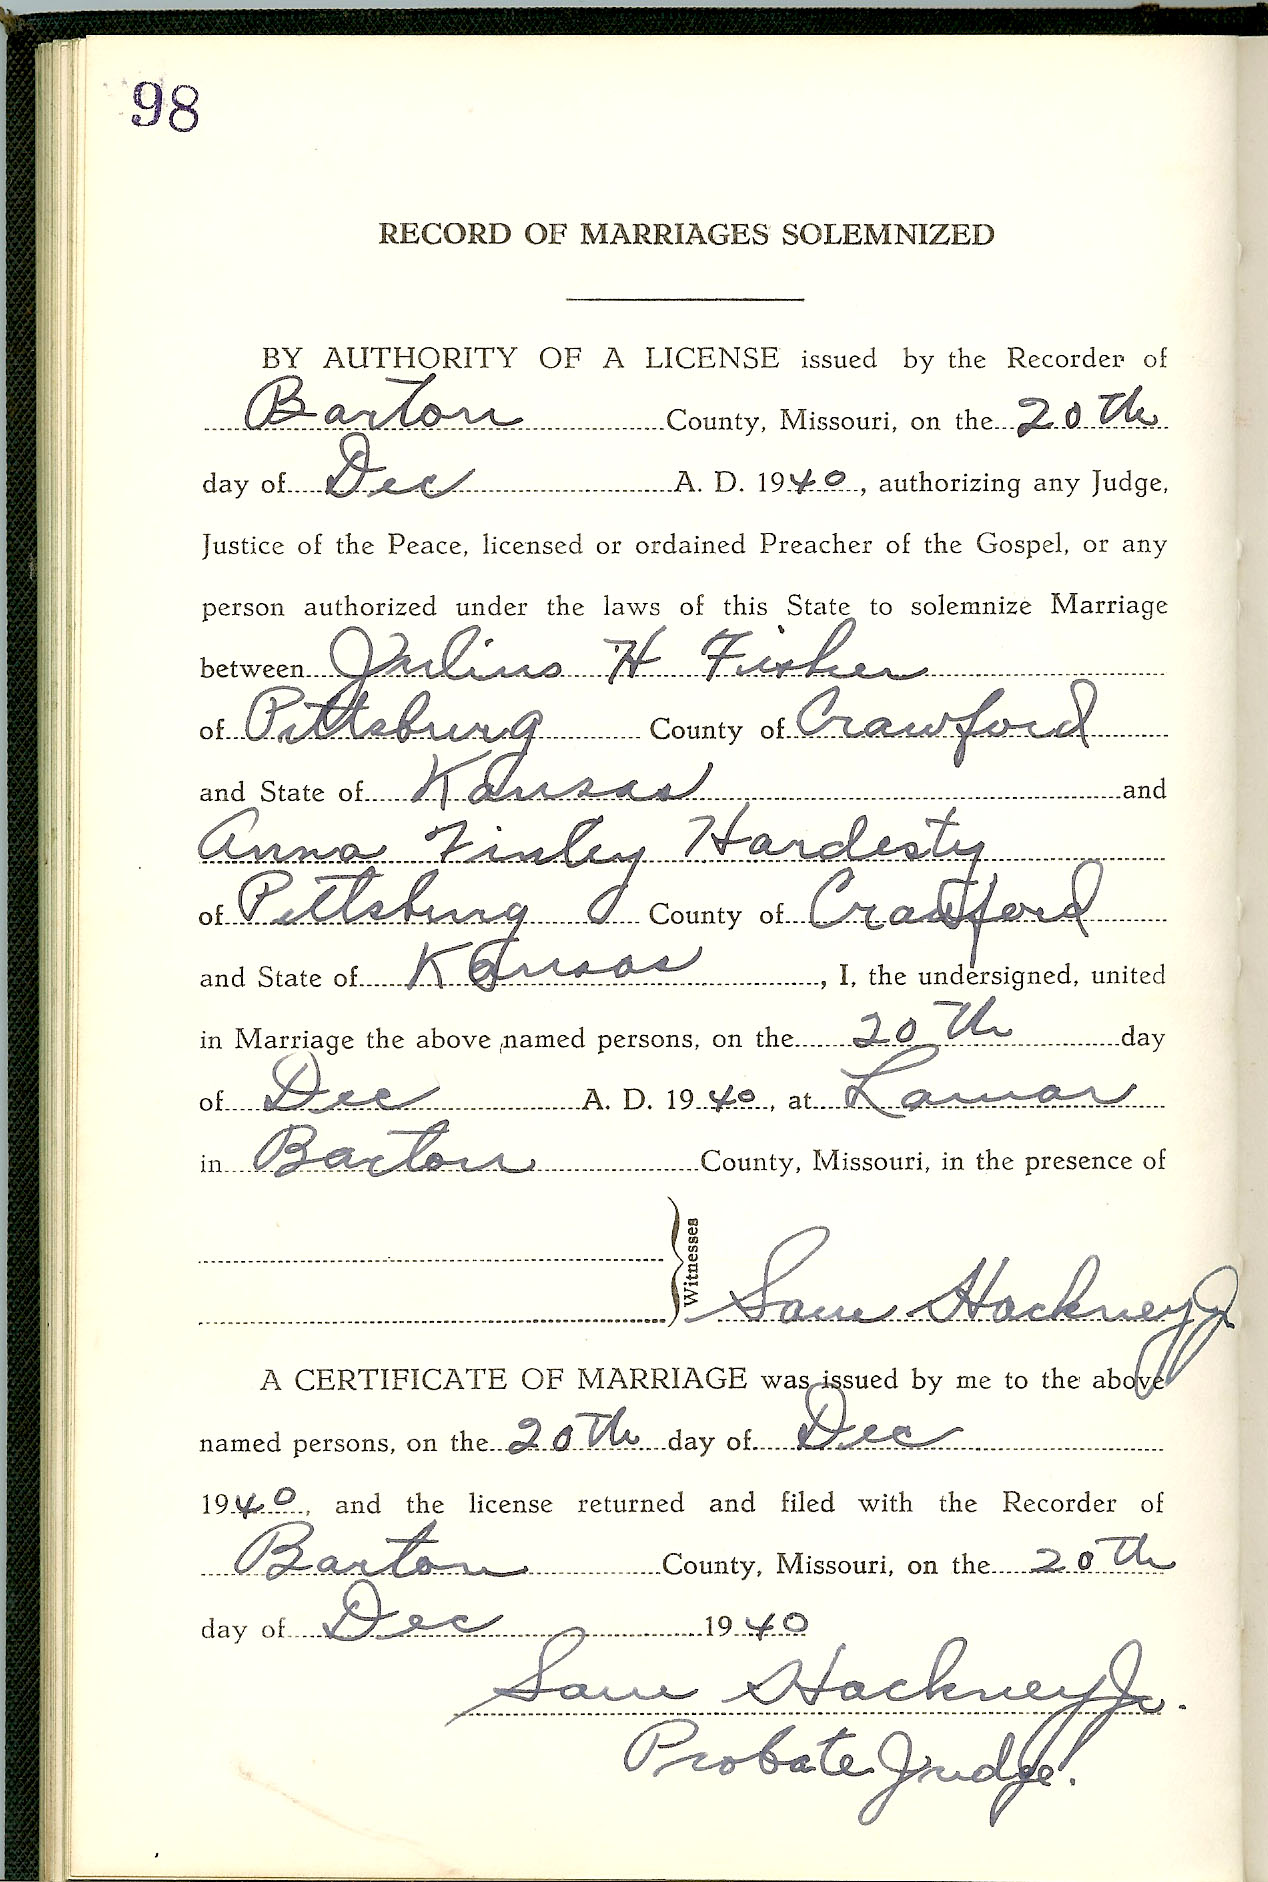 98
RECORD OF MARRIAGES SOLEMNIZED
BY AUTHORITY OF A LICENSE issued by the Recorder of
Barton County, Missouri, on the 20th
day of Dec A. D. 1940, authorizing any Judge,
Justice of the Peace, licensed or ordained Preacher of the Gospel, or any
person authorized under the laws of this State to solemnize Marriage
between Julius H Fisher
of Pittsburg County of Crawford
and State of Kansas and
Anna Finley Hardesty
of Pittsburg County of Crawford
and State of Kansas, I, the undersigned, united
in Marriage the above named persons, on the 20th day
of Dec A. D. 1940, at Lamar
in Barton County, Missouri, in the presence of
Witnesses
Sam Hackney Jr
A CERTIFICATE OF MARRIAGE was issued by me to the above
named persons, on the 20th day of Dec
1940, and the license returned and filed with the Recorder of
Barton County, Missouri, on the 20th
day of Dec 1940
Sam Hackney Jr.
Probate Judge.